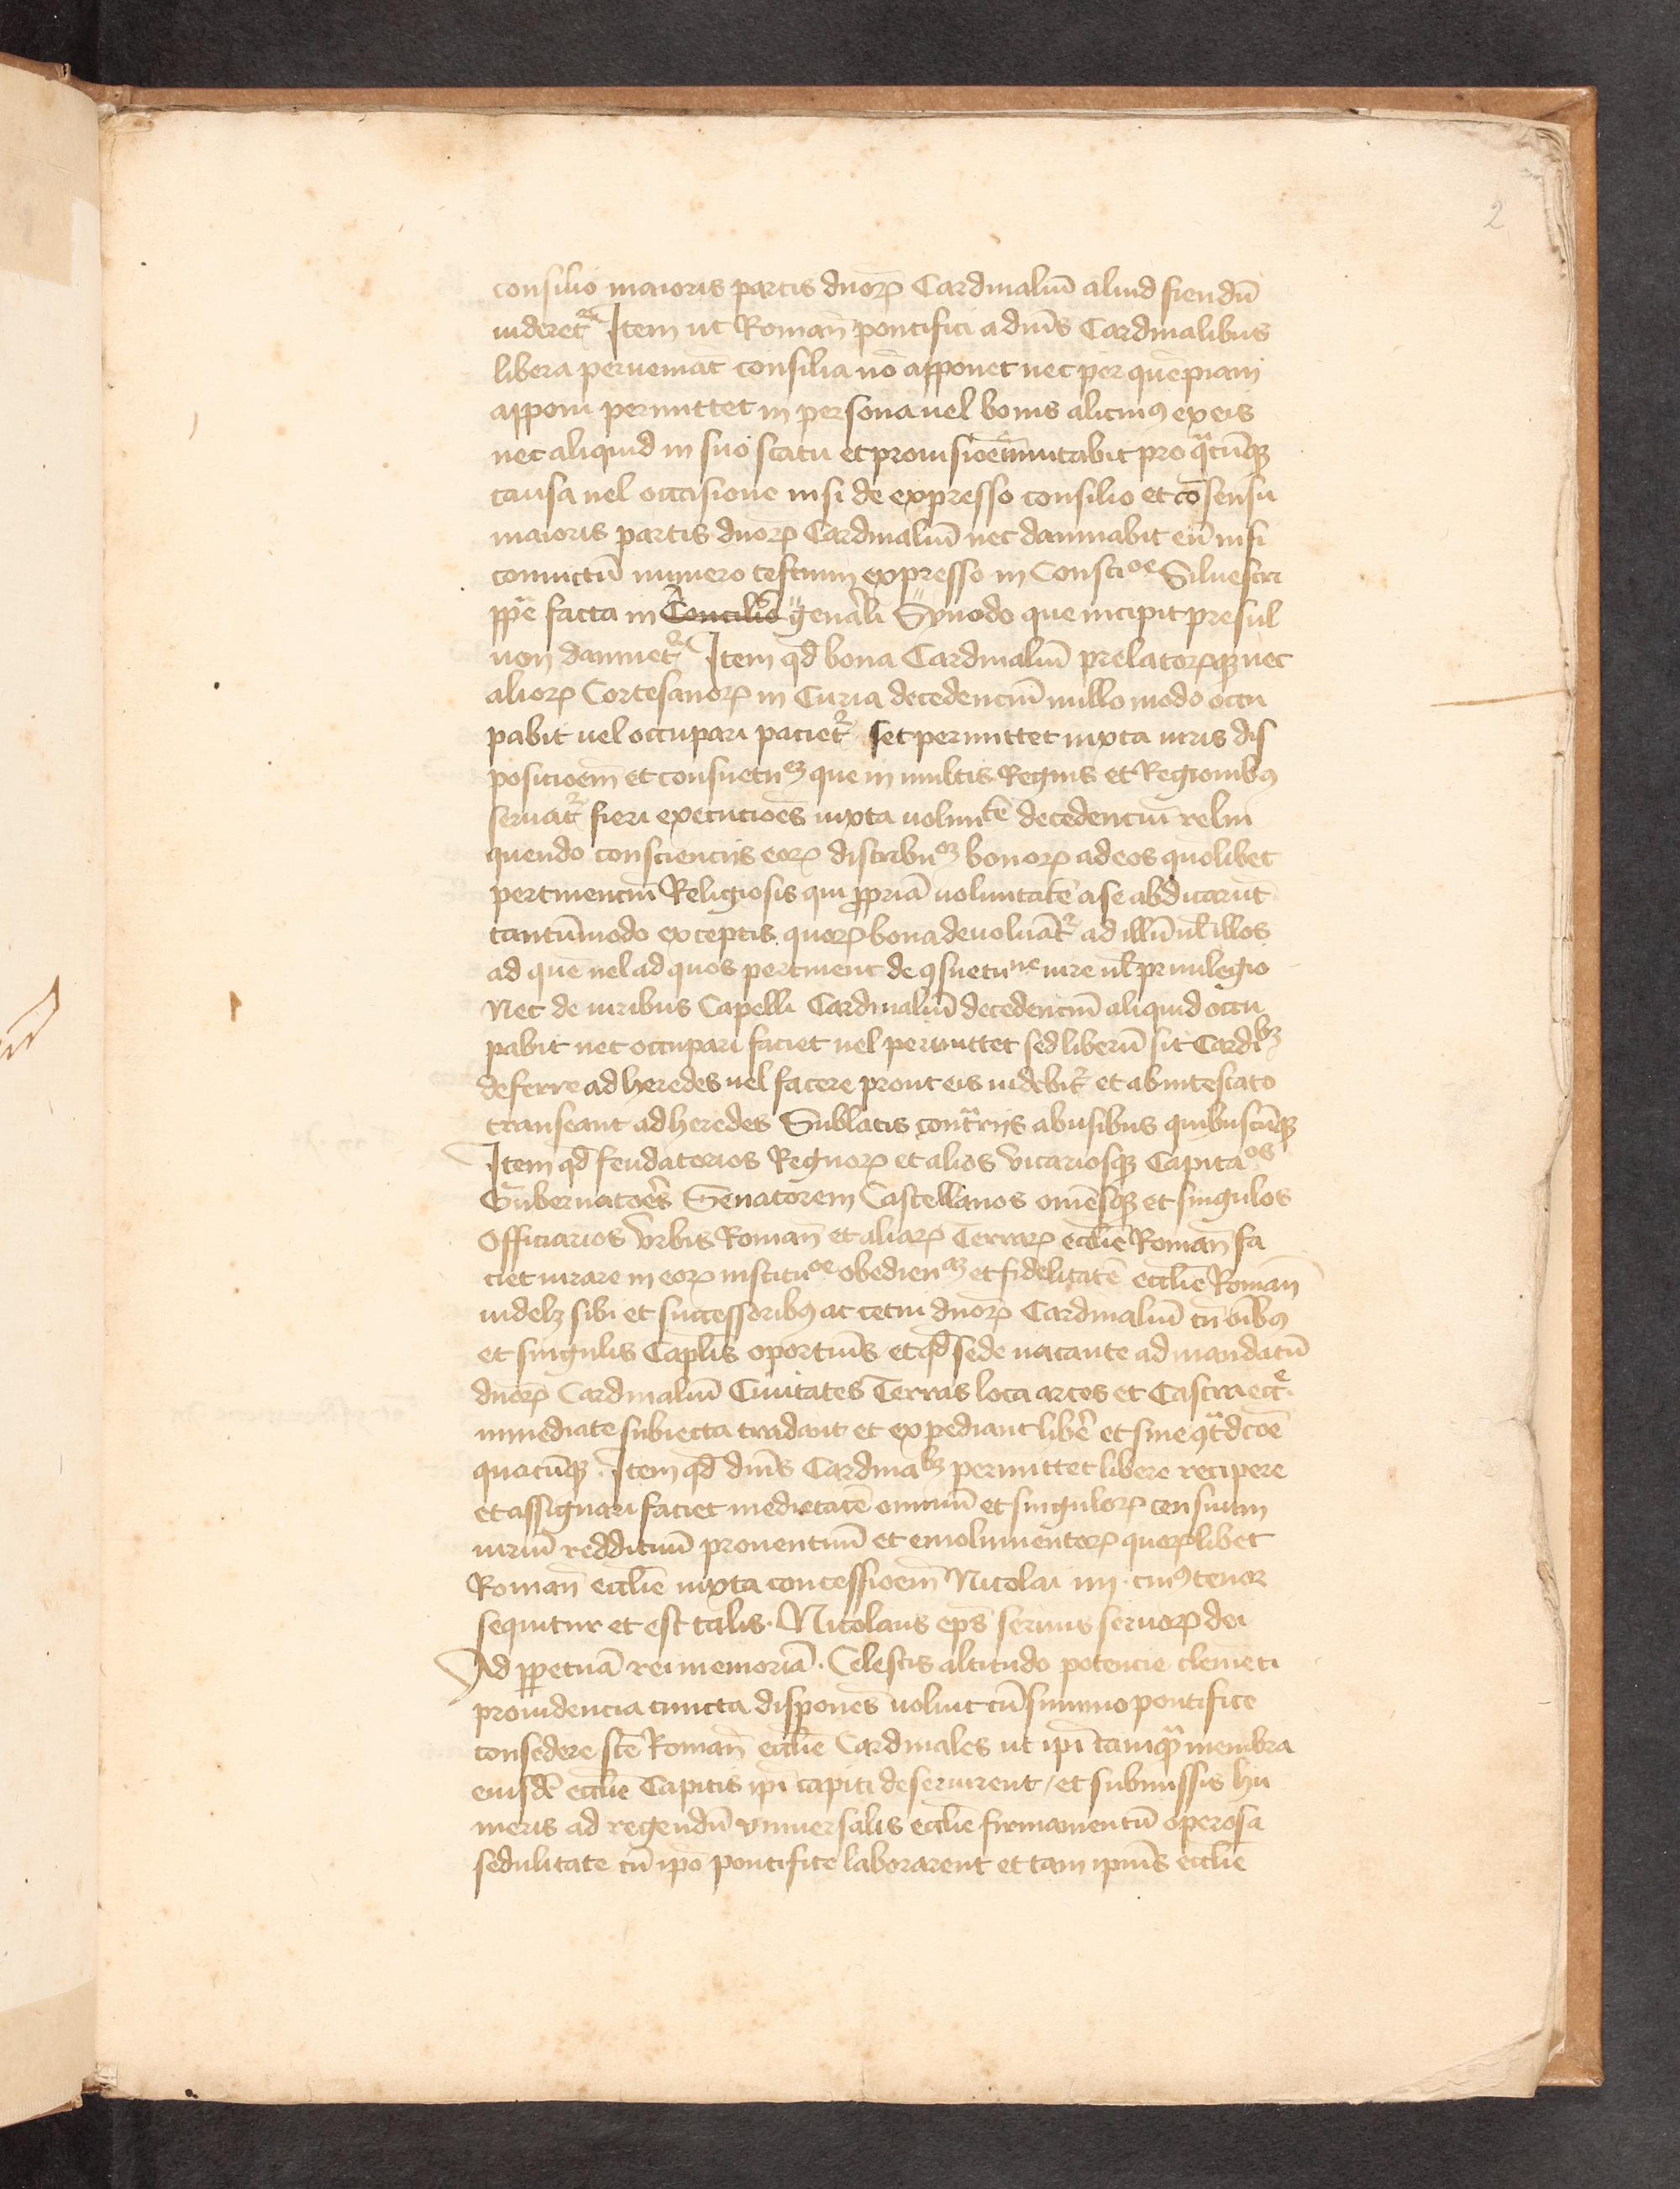 2
consilio maioris partis dnorꝝ Cardinaliū aliud fiendū
uideret᷑ Item ut Roman̄ pontifici a dnīs Cardinalibus
libera perueniāt consilia nō apponet nec per quēpiam
apponi permittet in persona uel bonis alicuiꝯ ex eis
nec aliquid in suo statu et prouisiōe īmutabit pro qͣcūqꝫ
causa uel occasione nisi de expresso consilio et cōsensu
maioris partis dnorꝝ Cardinaliū nec damnabit eū nisi
conuictū numero testium expresso in Constiᵒᵉ Siluestri
ppͤ facta in Concilio genāli Synodo que incipit presul
non damnet᷑ Item qd̄ bona Cardinaliū prelatorꝝqꝫ nec
aliorꝝ Cortesanorꝝ in Curia decedenciū nullo modo occu
pabit uel occupari paciet᷑ set permittet iuxta iuris dis
posicioem̄ et consuetuᵉᵐ que in multis Regnis et Regionibꝯ
seruat᷑ fieri executiōes iuxta volunᵗᵉ̄ decedenciū relin
quendo conscienciis eorꝝ distribuᵉᵐ bonorꝝ ad eos quolibet
pertinenciū Religiosis qui ꝓpriā uoluntatē a se abdicarūt
tantūmodo exceptis quorꝝ bona deuoluāt᷑ ad illū ul̄ illos
ad quē uel ad quos pertinent de ꝯsuetuⁿᵉ iure ul̄ priuilegio
Nec de iuribus Capelli Cardinaliū decedenciū aliquid occu
pabit nec occupari faciet uel permittet sed liberū sit Cardiᵇꝫ
deferre ad heredes uel facere prout eis uidebit᷑ et ab intestato
transeant ad heredes Sublatis contͣriis abusibus quibuscūqꝫ
Item qd̄ feudatorios Regnorꝝ et alios vicariosqꝫ Capitaᵒˢ
Gubernatoēs Senatorem Castellanos omēsqꝫ et singulos
Officiarios Vrbis Roman̄ et aliarꝝ Terrarꝝ eccliē Roman̄ fa
ciet iurare in eorꝝ instituᵒᵉ obedienᵃᵐ et fidelitatē eccliē Roman̄
uidelꝫ sibi et successoribꝯ ac cetui dnorꝝ Cardinaliū cū oībꝯ
et singulis Caplis̄ oportunis et qd̄ sede uacante ad mandatū
dnorꝝ Cardinaliū Ciuitates Terras loca arces et Castra eccͤ
inmediate subiecta tradant et expediant libere et sine ꝯtͣdcōe
quacūqꝫ. Item qd̄ dnīs Cardinaᵇꝫ permittet libere recipere
et assignari faciet medietatē omniū et singulorꝝ censuum
iuriū reddituū prouentuū et emolumentorꝝ quorꝝlibet
Roman̄ eccliē iuxta concessioem̄ Nicolai iiij. cuiꝯ tenor
sequitur et est talis. Nicolaus ep̄s seruus seruorꝝ dei
Ad ꝑpetuā rei memoriā. Celestis altitudo potencie clemēti
prouidencia cuncta disponēs uoluit cū summo pontifice
consedere stē Roman̄ eccliē Cardinales ut ipī tamqͣ membra
eiusdē eccliē Capitis ipī capiti deseruirent / et submissis hu
meris ad regendū vniuersalis eccliē firmamentū operosa
sedulitate cū ipō pontifice laborarent et tam ipius̄ eccliē